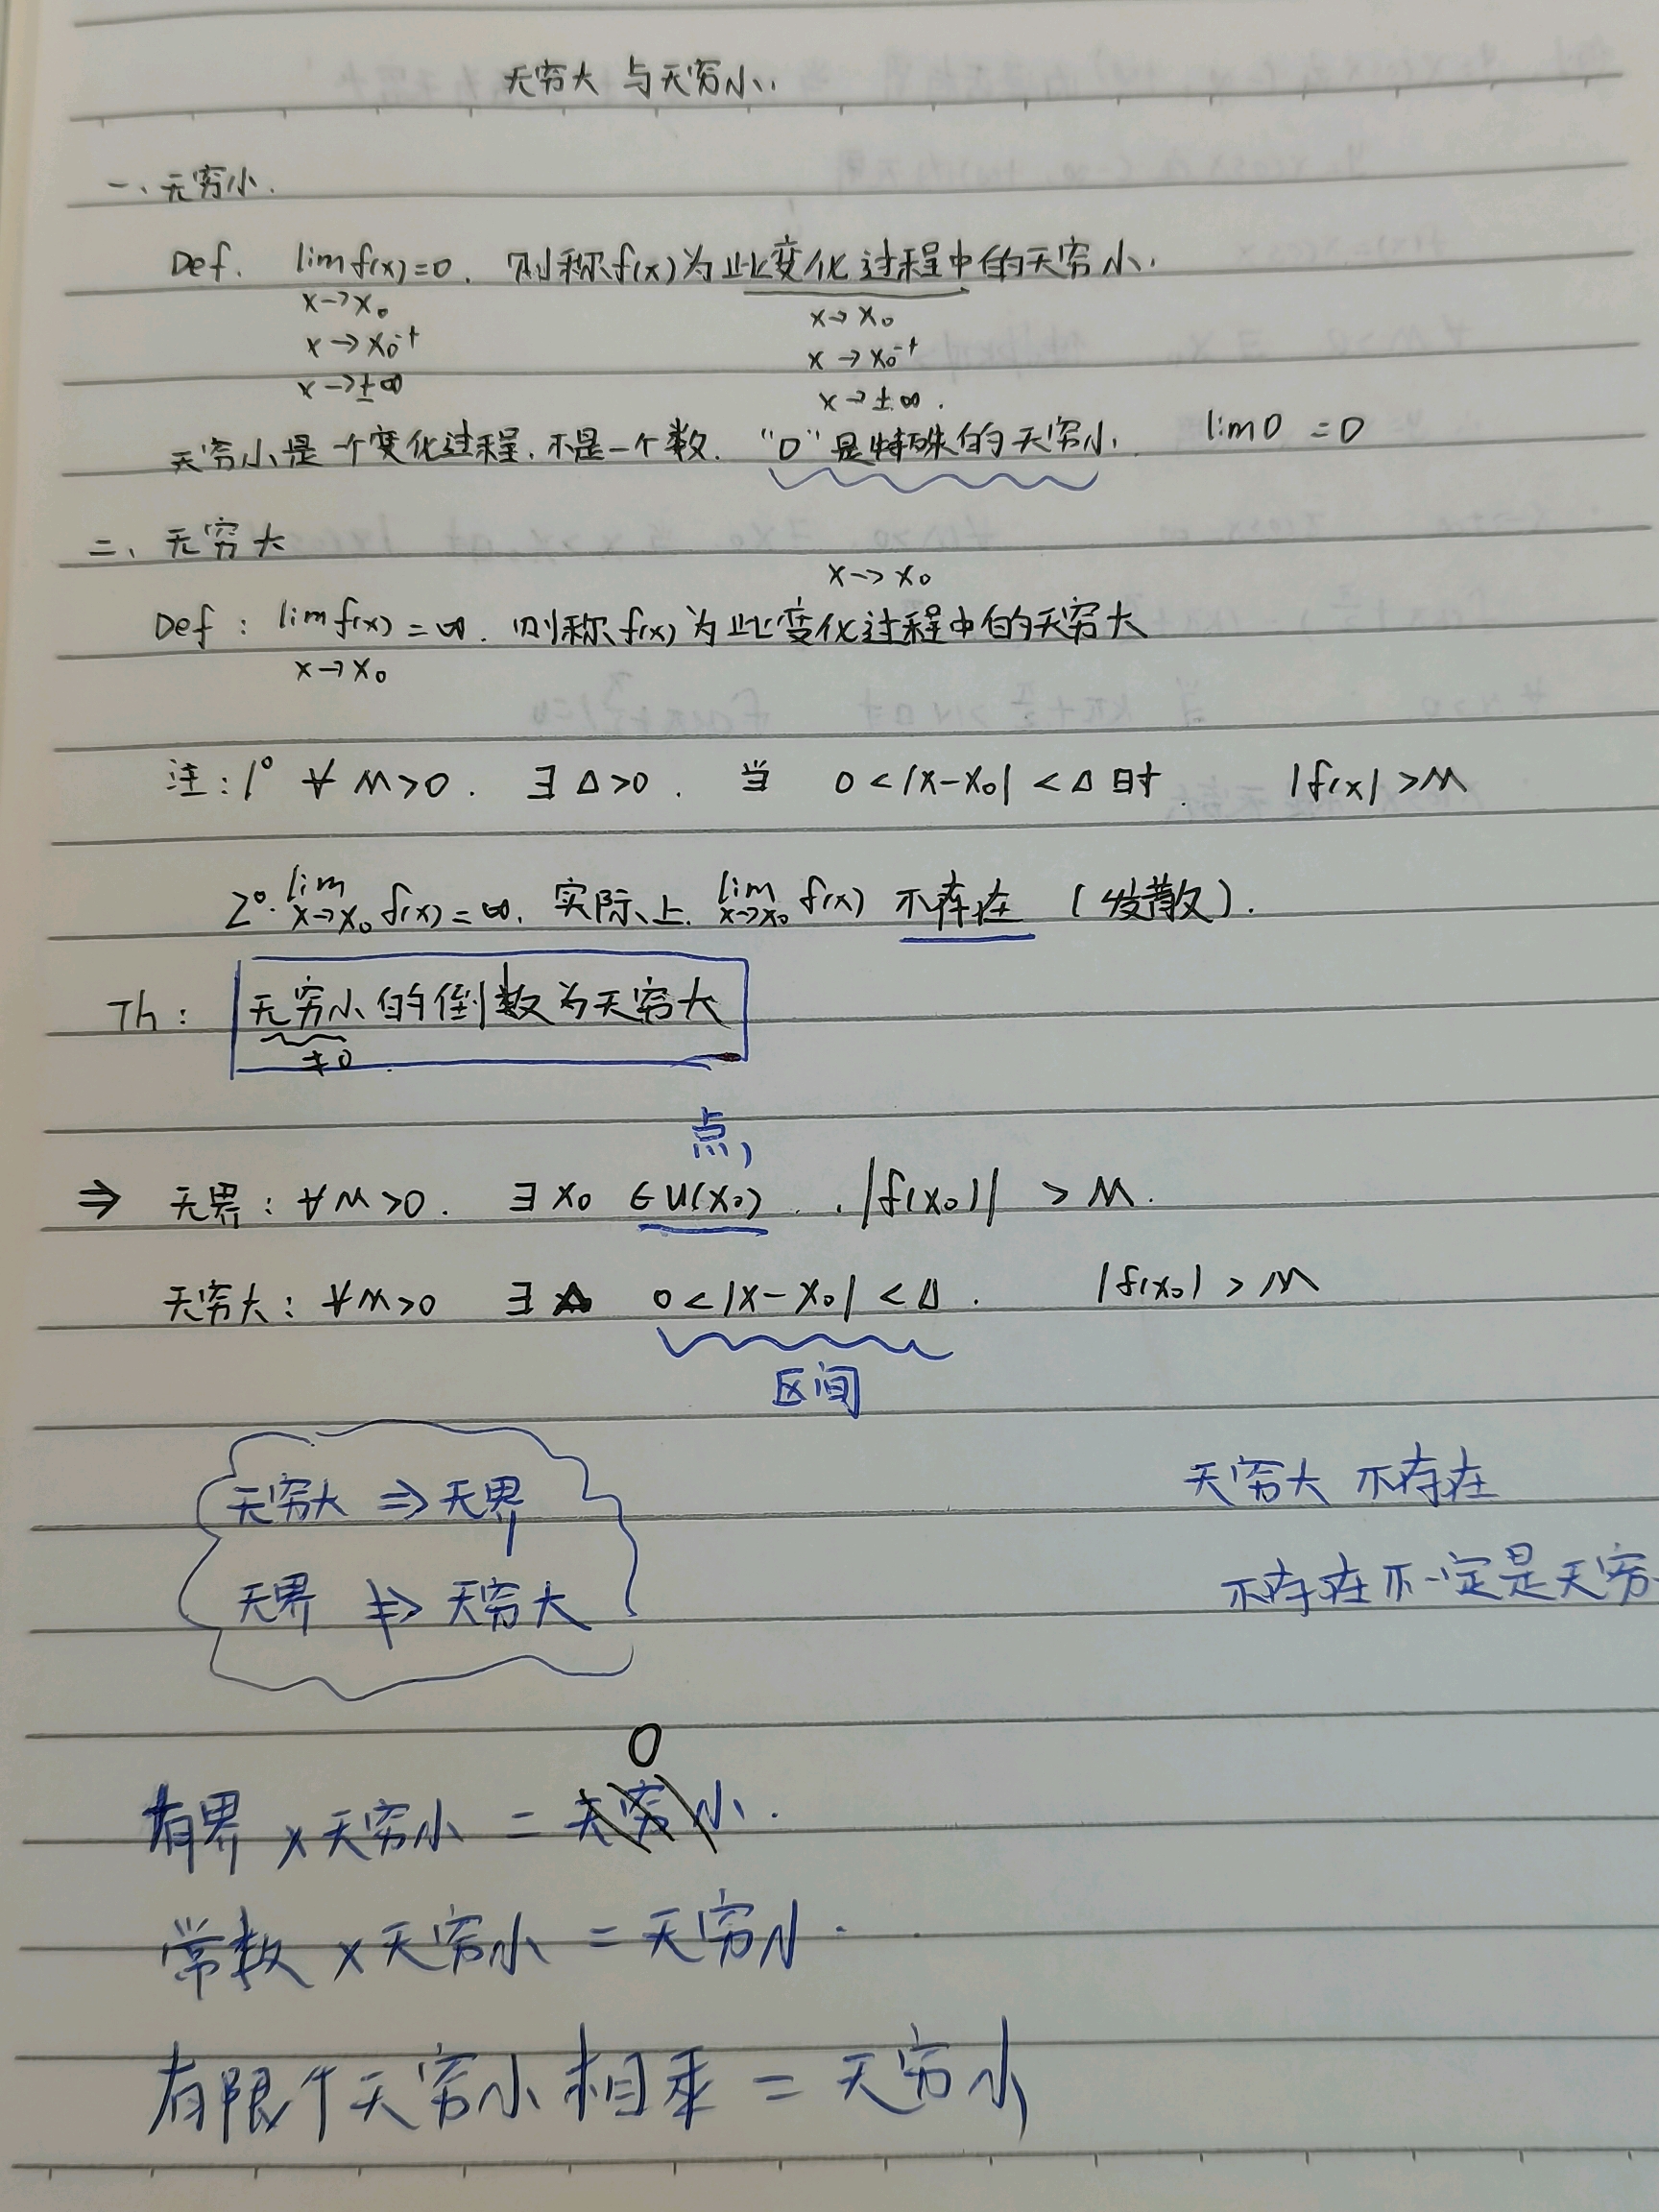 无穷大与无穷小.
一、无穷小.
Def. lim f(x)=0. 则称f(x)为此变化过程中的无穷小.
x→x₀ x→x₀
x→x₀⁻⁺ x→x₀⁻⁺
x→±∞ x→±∞.
无穷小是一个变化过程.不是一个数. "0"是特殊的无穷小. lim0=0
二、无穷大
x→x₀
Def: lim f(x)=∞. 则称f(x)为此变化过程中的无穷大
x→x₀
注:1° ∀M>0. ∃Δ>0. 当 0<|x-x₀|<Δ时. |f(x)|>M
2°. lim x→x₀ f(x)=∞. 实际上. lim x→x₀ f(x) 不存在 (发散).
Th: 无穷小的倒数为无穷大
≠0
点,
⇒ 无界:∀M>0. ∃x₀ ∈U(x₀) . |f(x₀)|>M.
无穷大:∀M>0 ∃Δ 0<|x-x₀|<Δ. |f(x₀)|>M
区间
无穷大⇒无界 无穷大不存在
无界⇏无穷大 不存在不一定是无穷
0
有界×无穷小=无穷小.
常数×无穷小=无穷小.
有限个无穷小相乘=无穷小